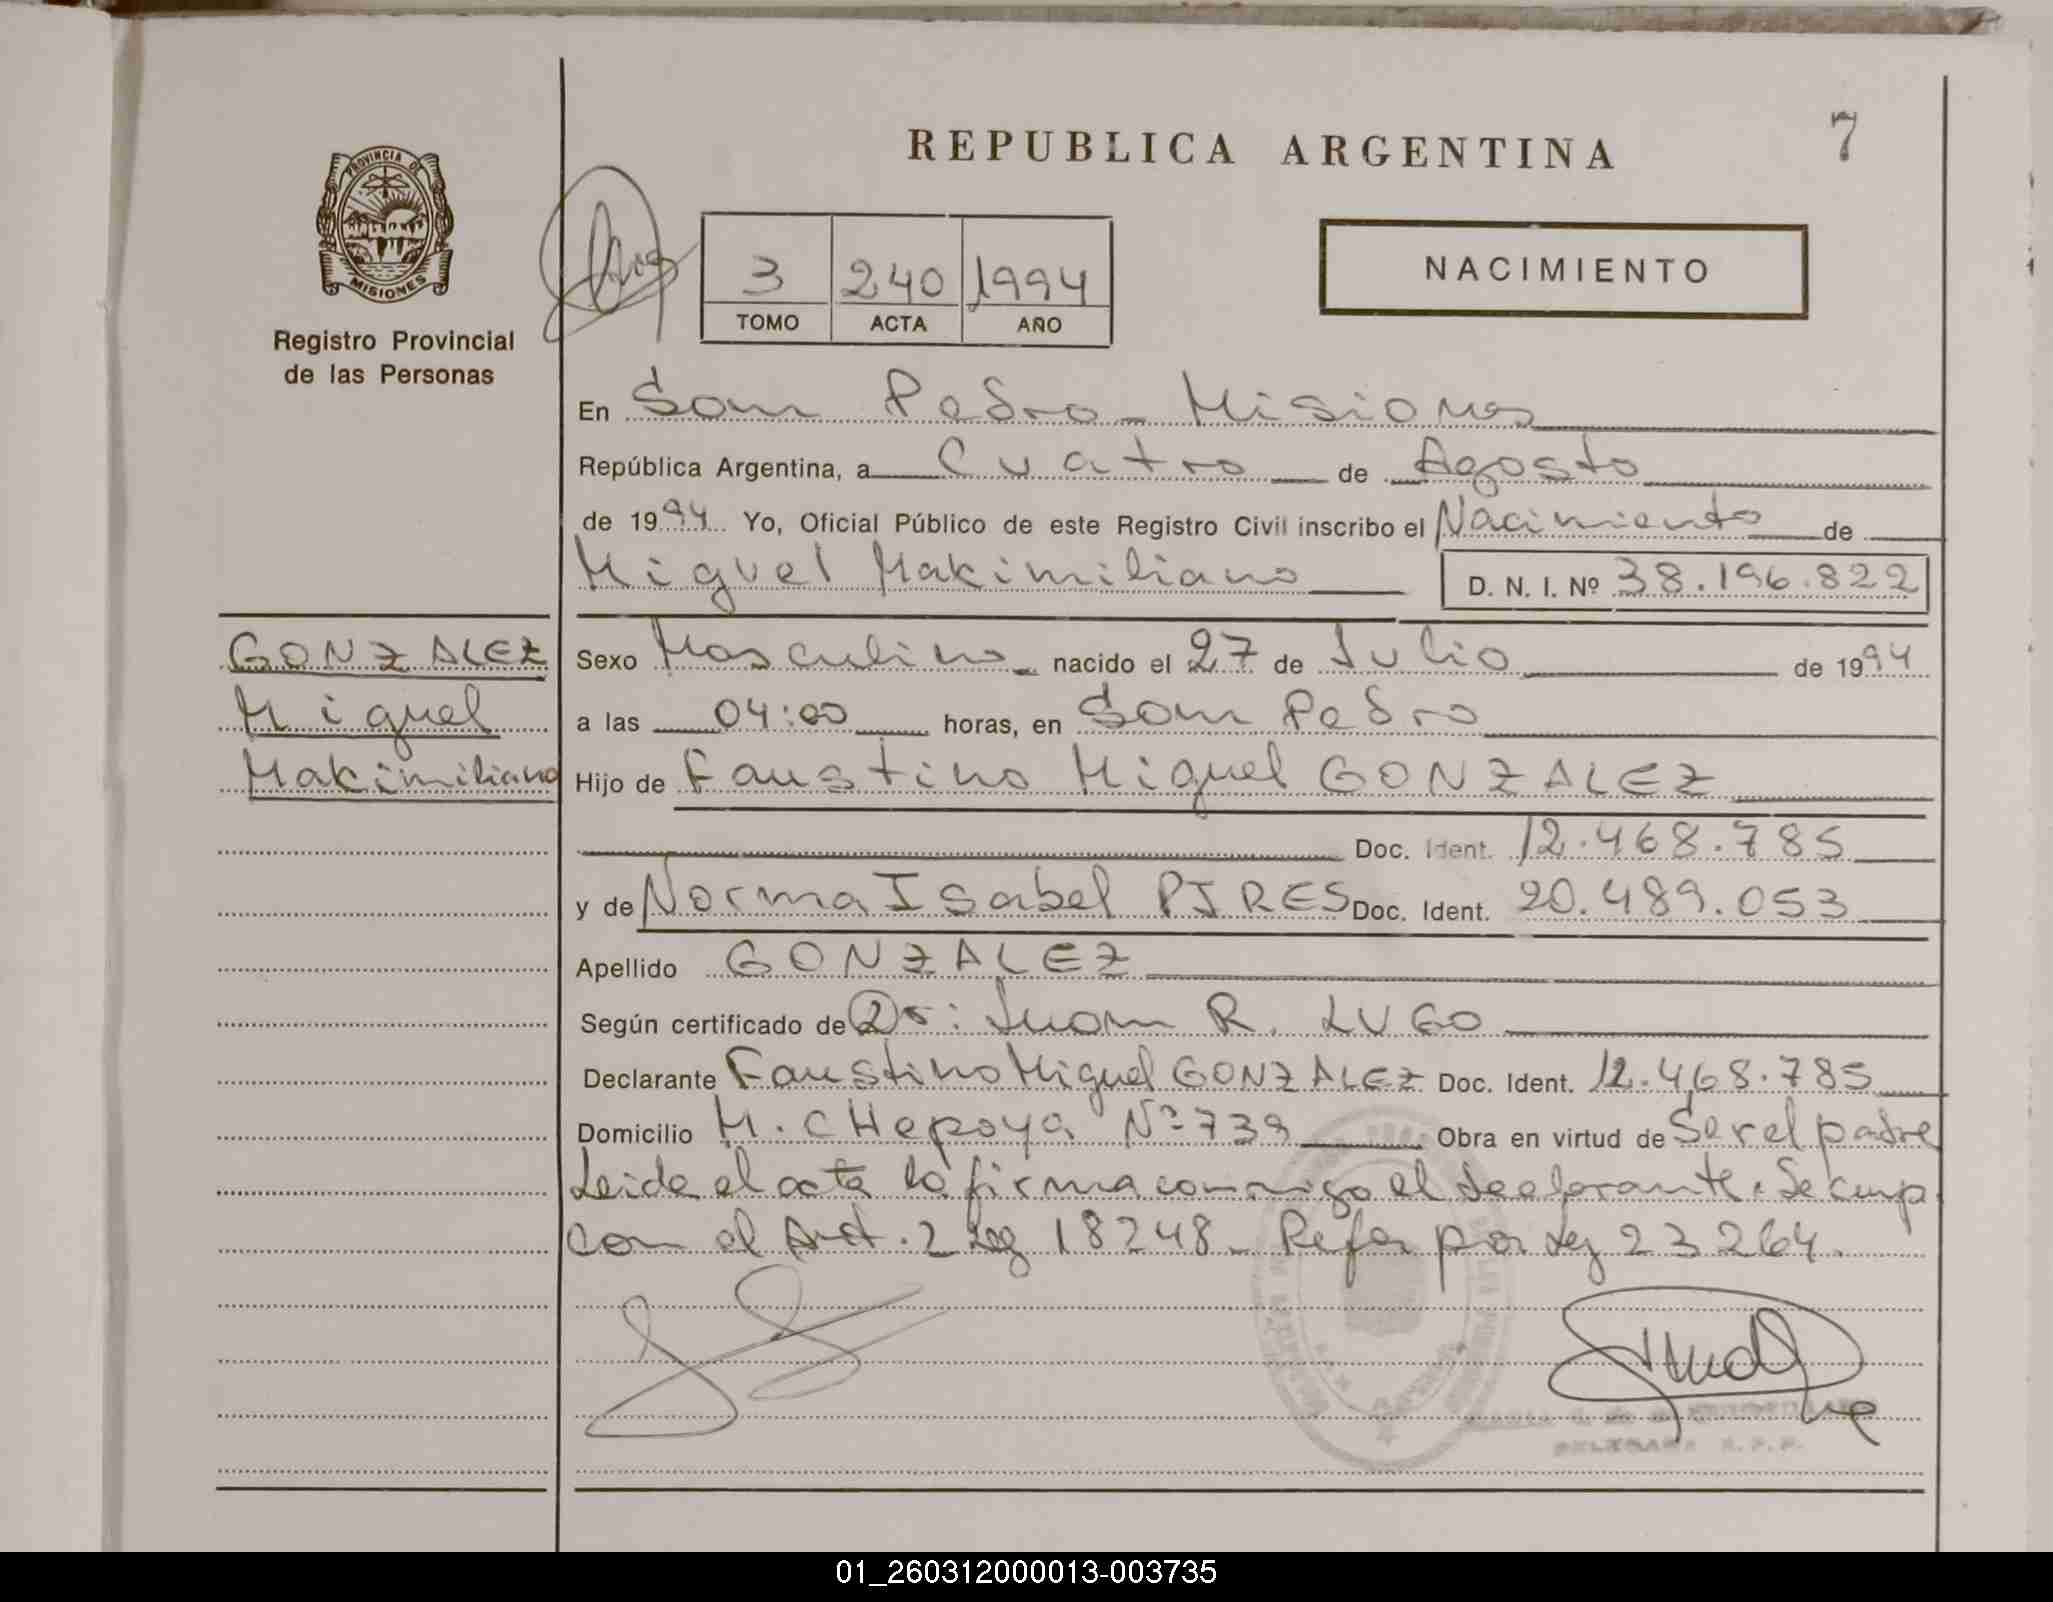 REPUBLICA ARGENTINA
7
PROVINCIA DE
MISIONES
Registro Provincial
de las Personas
3 240 1994
TOMO ACTA AÑO
NACIMIENTO
En San Pedro - Misiones
República Argentina, a Cuatro de Agosto
de 1994 Yo, Oficial Público de este Registro Civil inscribo el Nacimiento de
Miguel Makimiliano D. N. I. Nº 38.196.822
GONZALEZ
Miguel
Makimiliano
Sexo Masculino nacido el 27 de Julio de 1994
a las 04:00 horas, en San Pedro
Hijo de Faustino Miguel GONZALEZ
Doc. Ident. 12.468.785
y de Norma Isabel PIRES Doc. Ident. 20.489.053
Apellido GONZALEZ
Según certificado de Dr: Juan R. LUGO
Declarante Faustino Miguel GONZALEZ Doc. Ident. 12.468.785
Domicilio M. CHepoya Nº 739 Obra en virtud de Ser el padre
Leida el acta la firma conmigo el declarante. Se cump.
con el Art. 2 Ley 18248 - Refor por Ley 23264.
01_260312000013-003735